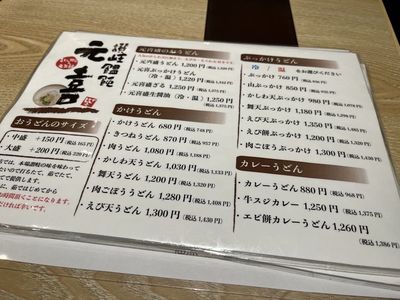 讃岐饂飩
元喜
おうどんのサイズ
中盛 +150円 (税込 165円)
大盛 +200円 (税込 220円)
元喜盛のうどん
元喜盛うどん 1,200円
元喜ぶっかけうどん
(冷・温) 1,220円
元喜盛ざる 1,150円
元喜盛生醤油 (冷・温) 1,250円
(税込 1,375円)
かけうどん
かけうどん 680円 (税込 748円)
きつねうどん 870円 (税込 957円)
肉うどん 1,080円 (税込 1,188円)
かしわ天うどん 1,030円 (税込 1,133円)
舞天うどん 1,200円 (税込 1,320円)
肉ごぼううどん 1,280円 (税込 1,408円)
えび天うどん 1,300円 (税込 1,430円)
ぶっかけうどん
冷/温 をお選びください
ぶっかけ 760円
山ぶっかけ 850円
かしわ天ぶっかけ 980円 (税込 1,078円)
舞天ぶっかけ 1,180円
えび天ぶっかけ 1,250円
えび餅ぶっかけ 1,200円
肉ごぼうぶっかけ 1,300円
カレーうどん
カレーうどん 880円 (税込 968円)
牛スジカレーうどん 1,250円 (税込 1,375円)
エビ餅カレーうどん 1,260円
(税込 1,386円)